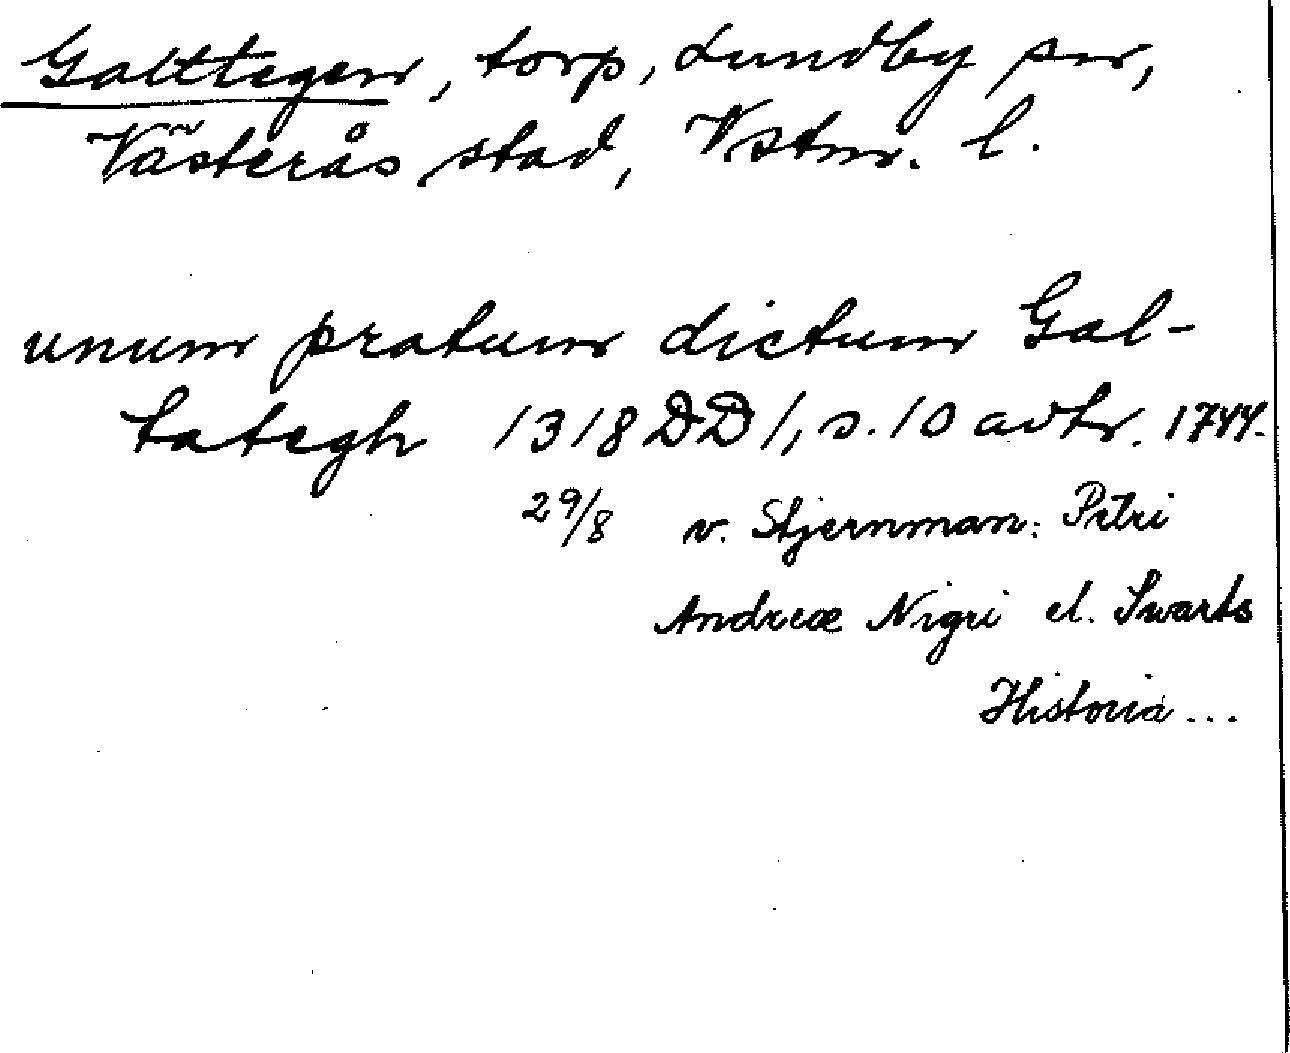 Galttegen, torp, Lundby sn,
Västerås stad, Vstm. l.
unum pratum dictum Gal-
tategh 1318 DD 1, s. 10 avtr. 1744.
29/8 v. Stjernman: Petri
Andreæ Nigri el. Swarts
Historia...